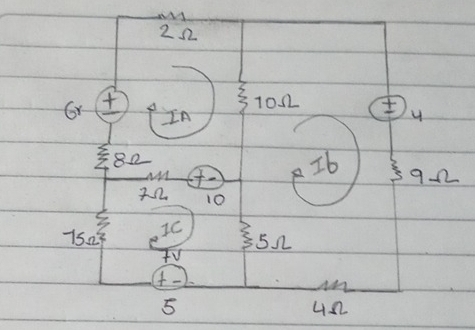 2Ω
6v
+
-
IA
10Ω
+
-
4
8Ω
Ib
9Ω
7Ω
+ -
10
15Ω
IC
5Ω
7V
+ -
5
4Ω